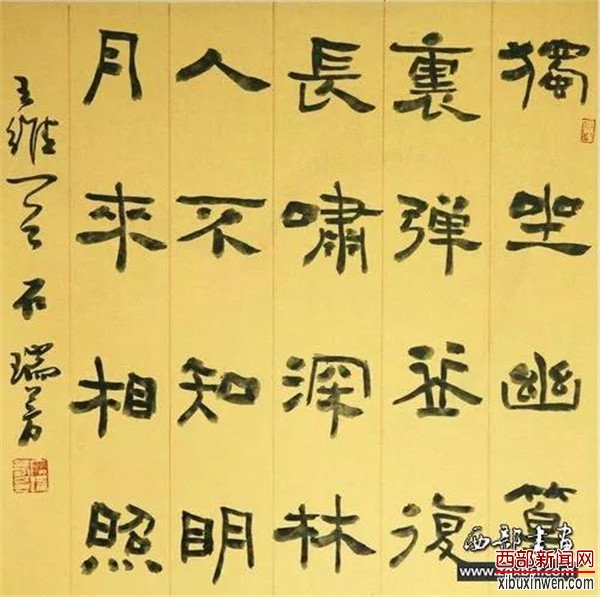 獨坐幽篁
裏彈並復
長嘯深林
人不知明
月來相照
王維 石瑞芳
西部書畫
西部新闻网
xibuxinwen.com